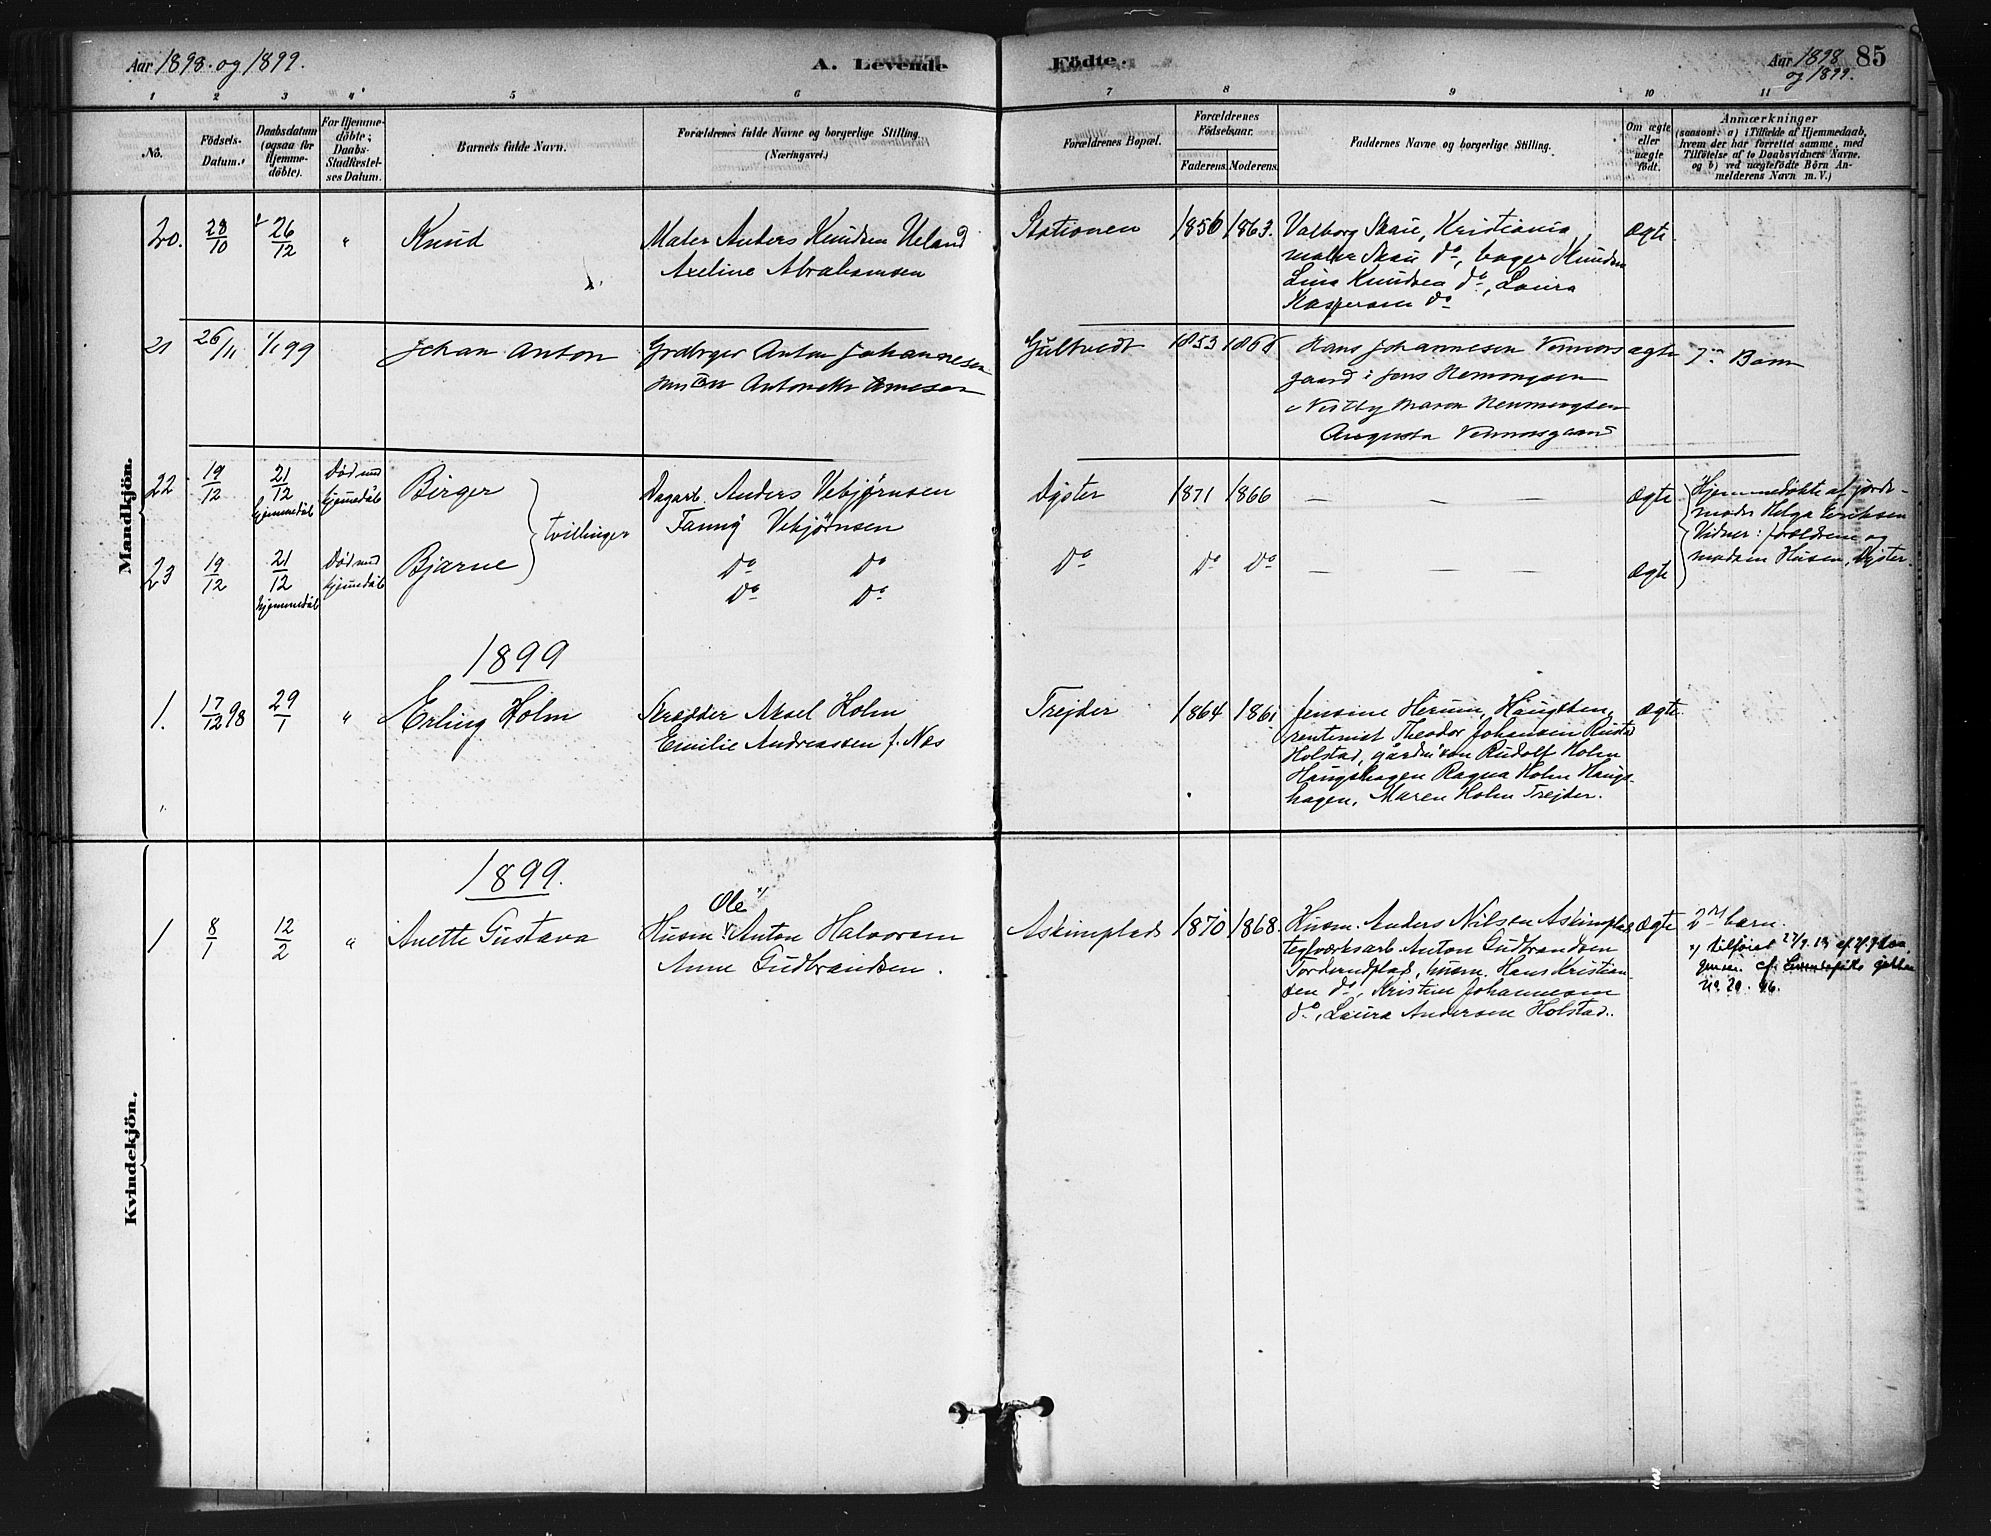 Aar 1898. og 1899.
A. Levende
Födte.
Aar 1898 og 1899.
85
1 2 3 4 5 6 7 8 9 10 11
No.
Födsels-Datum.
Daabsdatum (ogsaa for Hjemme-döbte).
For Hjemme-döbte; Daabs-Stadfæstel-ses Datum.
Barnets fulde Navn.
Forældrenes fulde Navne og borgerlige Stilling (Næringsvei.)
Forældrenes Bopæl.
Forældrenes Födselsaar.
Faderens. Moderens.
Faddernes Navne og borgerlige Stilling.
Om ægte eller uægte födt.
Anmærkninger
(saasom: a) i Tilfælde af Hjemmedaab, hvem der har forrettet samme, med Tilföielse af to Daabsvidners Navne, og b) ved uægtefödte Börn An-melderens Navn m. V.)
Mandkjön.
20. 28/10 26/12 " Knud
Maler Anders Knudsen Ueland
Axeline Abrahamsen
Stationen 1856 1863.
Valborg Skau, Kristiania,
maler Skau do, bager Knudsen
Lina Knudsen do, Laura
Kaspersen do
Ægte.
21 26/11 1/1 99 Johan Anton
Grdbrger Anton Johannesen
Antonette
Gultvedt 1853 1868
Hans Johannesen Vennors
gaard; Jens Hemmingsen
Vestby Maren Hemmingsen
Augusta Vennorsgaard
ægte
7de Barn
22 19/12 21/12 hjemmedåb Død med hjemmedåb Birger
Dagarb. Anders Vebjørnsen
Fanny Vebjørnsen
Dyster 1871 1866 — — Ægte
tvillinger
23 19/12 21/12 hjemmedåb Død med hjemmedåb Bjarne
Do Do
Do Do
Do Do Do — — Ægte
Hjemmedøbte af jorde-
moder Helga Eriksen
Vidner: forældrene og
madsen Husen, Dyster.
1899
1. 17/12 98 29/1 " Erling Holm
Skrædder Aksel Holm
Emilie Andreassen f. Næs
Trejder 1864 1861
Jensine Herum, Haugsten,
rentenist Theodor Johansen Rustad
Holstad, gårdm.søn Rudolf Holm
Haugshagen Ragna Holm Haugs-
hagen, Maren Holm Trejder.
Ægte.
Kvindekjön.
1899.
1 8/1 12/2 " Anette Gustava
Ole x)
Husm. Anton Halvorsen
Anne Gudbrandsen.
Askimplads 1870 1868.
Husm. Anders Nilsen Askimplads
teglværksarb. Anton Gudbrandsen
Torderudplads, husm. Hans Kristian-
sen do, Kristine Johannesen
do, Laura Andersen Holstad.
Ægte
2det barn.
x) tilføiet 27/9. 13
No. 20. 96.